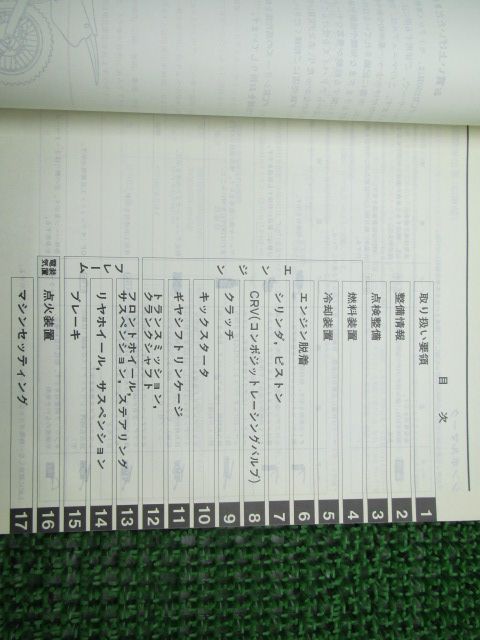 目 次
取り扱い要領 1
整備情報 2
点検整備 3
エンジン
燃料装置 4
冷却装置 5
エンジン脱着 6
シリンダ，ピストン 7
CRV(コンポジットレーシングバルブ) 8
クラッチ 9
キックスタータ 10
ギヤシフトリンケージ 11
トランスミッション，
クランクシャフト 12
フレーム
フロントホイール，
サスペンション，ステアリング 13
リヤホイール，サスペンション 14
ブレーキ 15
電装
気置
点火装置 16
マシンセッティング 17